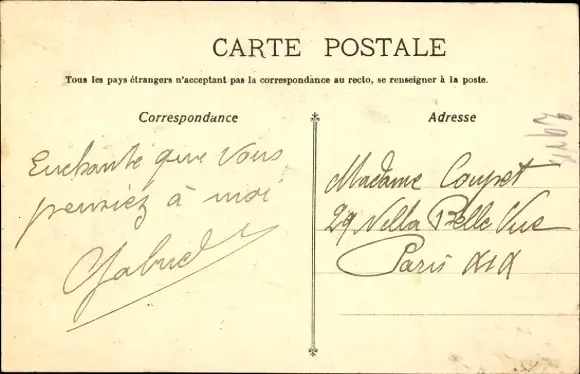 CARTE POSTALE
Tous les pays étrangers n'acceptant pas la correspondance au recto, se renseigner à la poste.
Correspondance
Enchanté que vous
pensiez à moi
Gabriel
Adresse
Madame Coupet
29 Villa Belle Vue
Paris XIX